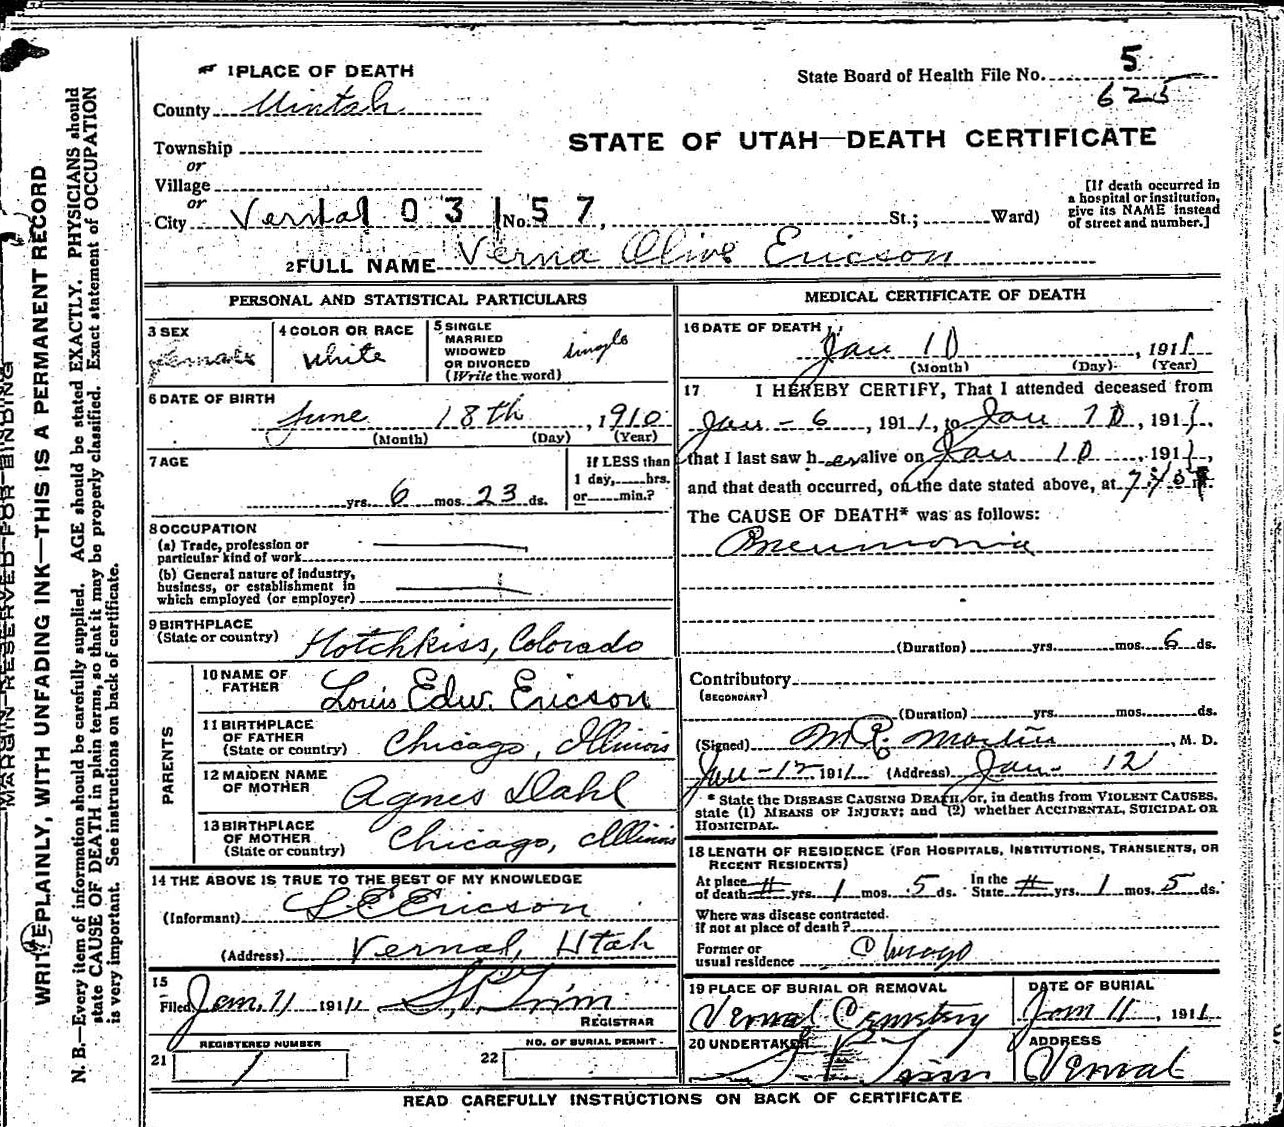 1 PLACE OF DEATH
State Board of Health File No. 5
625
County Uintah
STATE OF UTAH—DEATH CERTIFICATE
Township
or
Village
or
City Vernal 1 0 3 No. 5 7, St.; Ward)
[If death occurred in
a hospital or institution,
give its NAME instead
of street and number.]
2 FULL NAME Verna Olive Ericson
PERSONAL AND STATISTICAL PARTICULARS
3 SEX Female
4 COLOR OR RACE White
5 SINGLE
MARRIED
WIDOWED
OR DIVORCED
(Write the word)
single
6 DATE OF BIRTH
June 18th, 1910
(Month) (Day) (Year)
7 AGE
yrs. 6 mos. 23 ds.
If LESS than
1 day, hrs.
or min.?
8 OCCUPATION
(a) Trade, profession or
particular kind of work
(b) General nature of industry,
business, or establishment in
which employed (or employer)
9 BIRTHPLACE
(State or country) Hotchkiss, Colorado
PARENTS
10 NAME OF
FATHER Louis Edw. Ericson
11 BIRTHPLACE
OF FATHER
(State or country) Chicago, Illinois
12 MAIDEN NAME
OF MOTHER Agnes Dahl
13 BIRTHPLACE
OF MOTHER
(State or country) Chicago, Illinois
14 THE ABOVE IS TRUE TO THE BEST OF MY KNOWLEDGE
(Informant) L E Ericson
(Address) Vernal, Utah
15
Filed Jan. 11 1911
REGISTRAR
REGISTERED NUMBER
21 1
NO. OF BURIAL PERMIT
22
MEDICAL CERTIFICATE OF DEATH
16 DATE OF DEATH
Jan 10, 1911
(Month) (Day) (Year)
17 I HEREBY CERTIFY, That I attended deceased from
Jan - 6, 1911, to Jan 10, 1911,
that I last saw her alive on Jan 10, 1911,
and that death occurred, on the date stated above, at
The CAUSE OF DEATH* was as follows:
Pneumonia
(Duration) yrs. mos. 6 ds.
Contributory
(SECONDARY)
(Duration) yrs. mos. ds.
(Signed) Martin, M. D.
Jan - 12 1911 (Address) Jan - 12
* State the DISEASE CAUSING DEATH, or, in deaths from VIOLENT CAUSES,
state (1) MEANS OF INJURY; and (2) whether ACCIDENTAL, SUICIDAL OR
HOMICIDAL.
18 LENGTH OF RESIDENCE (FOR HOSPITALS, INSTITUTIONS, TRANSIENTS, OR
RECENT RESIDENTS)
At place
of death yrs. 1 mos. 5 ds. In the
State yrs. 1 mos. 5 ds.
Where was disease contracted.
if not at place of death?
Former or
usual residence Chicago
19 PLACE OF BURIAL OR REMOVAL
Vernal Cemetery
DATE OF BURIAL
Jan 11, 1911
20 UNDERTAKER
ADDRESS
Vernal
READ CAREFULLY INSTRUCTIONS ON BACK OF CERTIFICATE
MARGIN RESERVED FOR BINDING
WRITE PLAINLY, WITH UNFADING INK—THIS IS A PERMANENT RECORD
N. B.—Every item of information should be carefully supplied. AGE should be stated EXACTLY. PHYSICIANS should
state CAUSE OF DEATH in plain terms, so that it may be properly classified. Exact statement of OCCUPATION
is very important. See instructions on back of certificate.